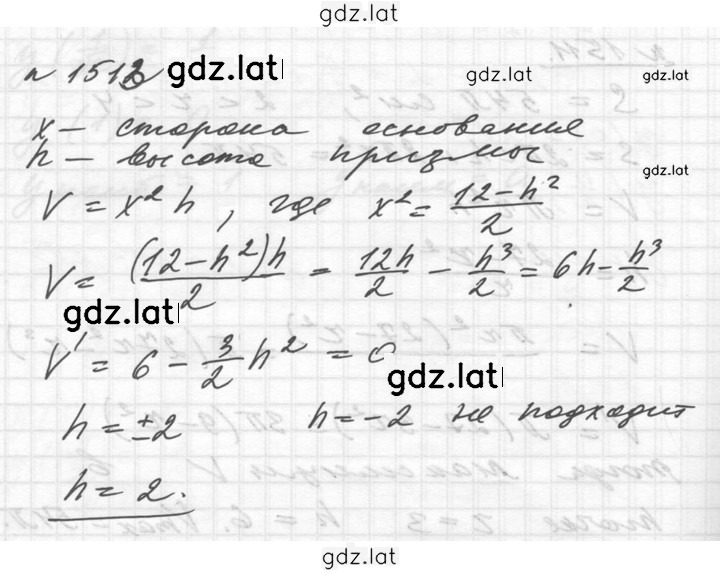 gdz.lat
n 1512 gdz.lat gdz.lat
x – сторона основания
h – высота призмы gdz.lat
V = x² h , где x² = (12 – h²)/2
V = (12 – h²)h/2 = 12h/2 – h³/2 = 6h – h³/2
gdz.lat
V' = 6 – 3/2 h² = 0
gdz.lat
h = ±2 h = –2 не подходит
h = 2.
gdz.lat